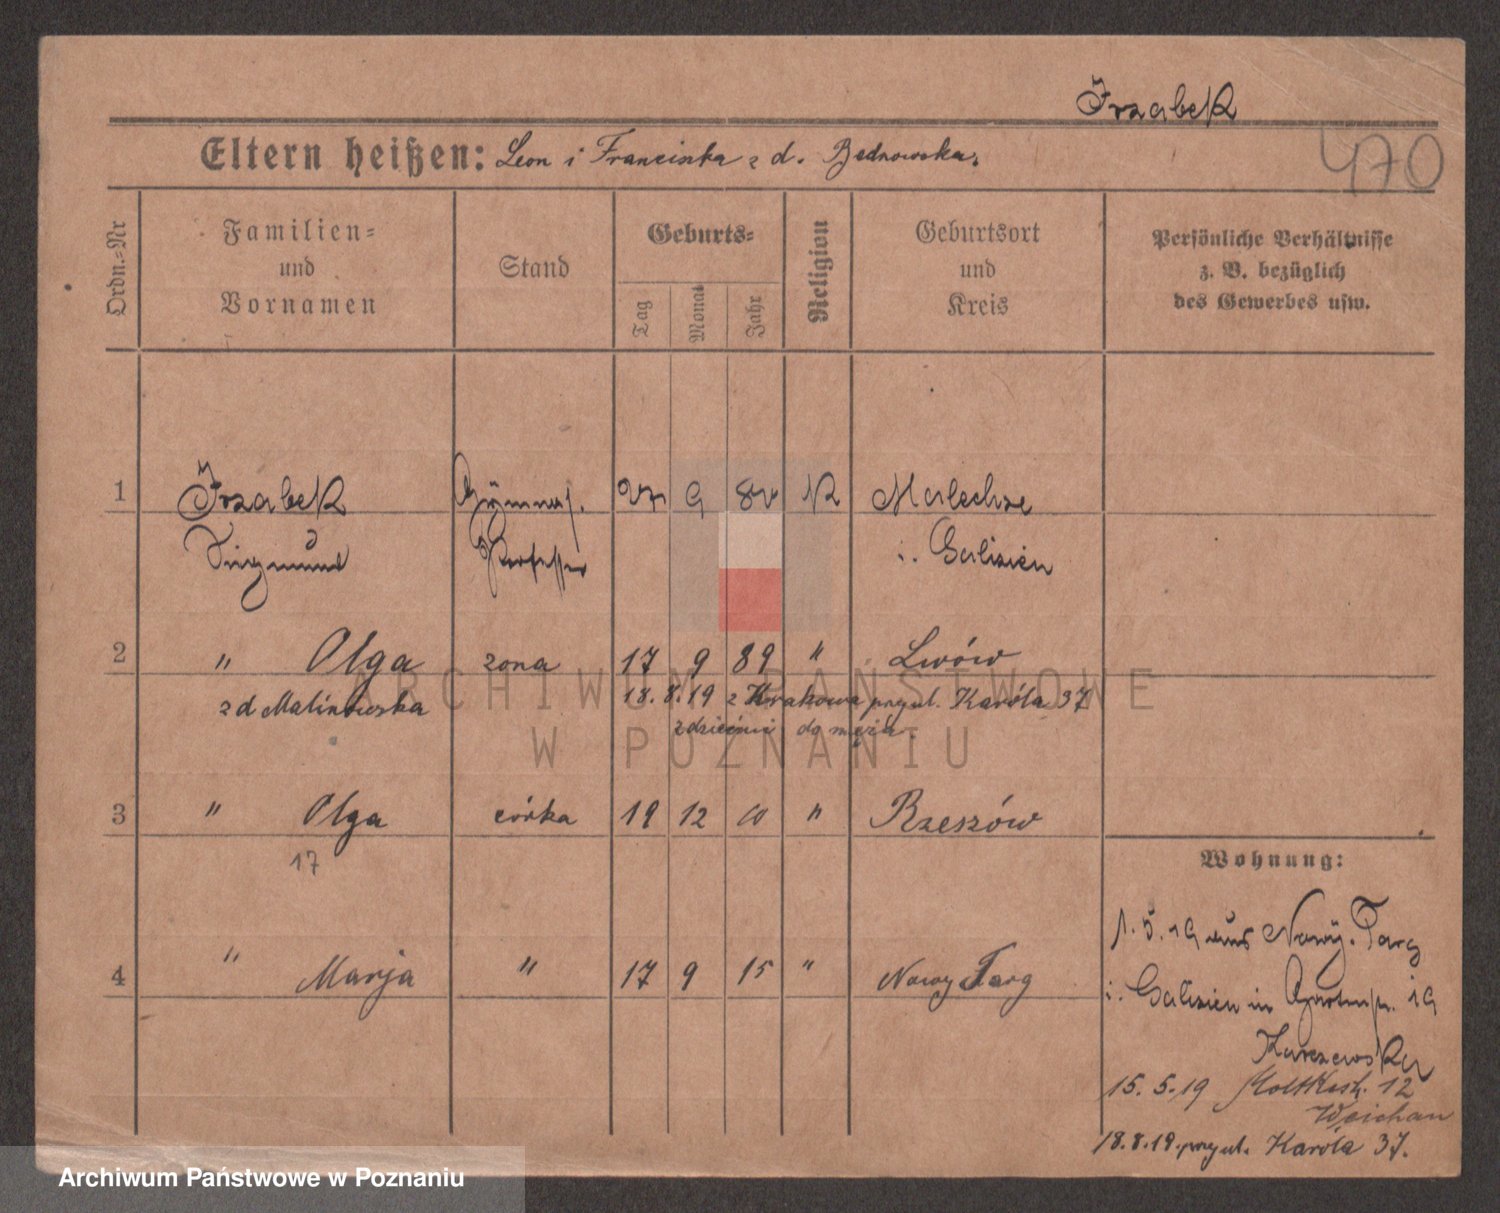 IrzabeK
470
Eltern heißen: Leon i Franciszka z d. Bednowska.
Ordn.=Nr
Familien=
und
Vornamen
Stand
Geburts=
Tag
Monat
Jahr
Religion
Geburtsort
und
Kreis
Persönliche Verhältnisse
z. B. bezüglich
des Gewerbes usw.
1 IrzabeK Gÿmnas. 9 K
Sigmund Professor i. Galizien
2 " Olga żona 17 9 89 " Lwów
z d Malinowska 18.8.19 z Krakowa przy ul. Karóla 37
z dziećmi do męża.
3 " Olga córka 19 12 10 " Rzeszów
17
4 " Marja " 17 9 15 " Nowy Targ
Wohnung:
1.5.19 aus Nowÿ-Targ
i. Galizien in Gartenstr. 19
Karczewska
15.5.19 Moltkestr. 12
Weichan
18.8.19. przy ul. Karóla 37.
ARCHIWUM PAŃSTWOWE
W POZNANIU
Archiwum Państwowe w Poznaniu